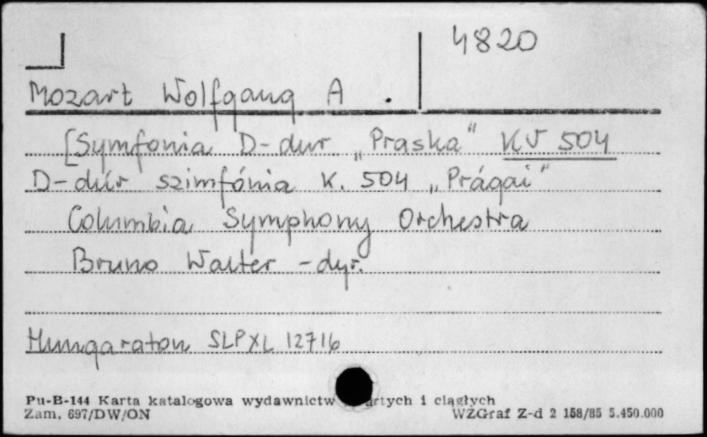 4820
Mozart Wolfgang A.
[Symfonia D-dur „Praska" KV 504
D-dúr szimfónia K. 504 „Prágai"
Columbia Symphony Orchestra
Bruno Walter - dyr.
Hungaraton SLPXL 12716
Pu-B-144 Karta katalogowa wydawnictw i ciągłych
Zam. 697/DW/ON WZGraf Z-d 2 158/85 5.450.000